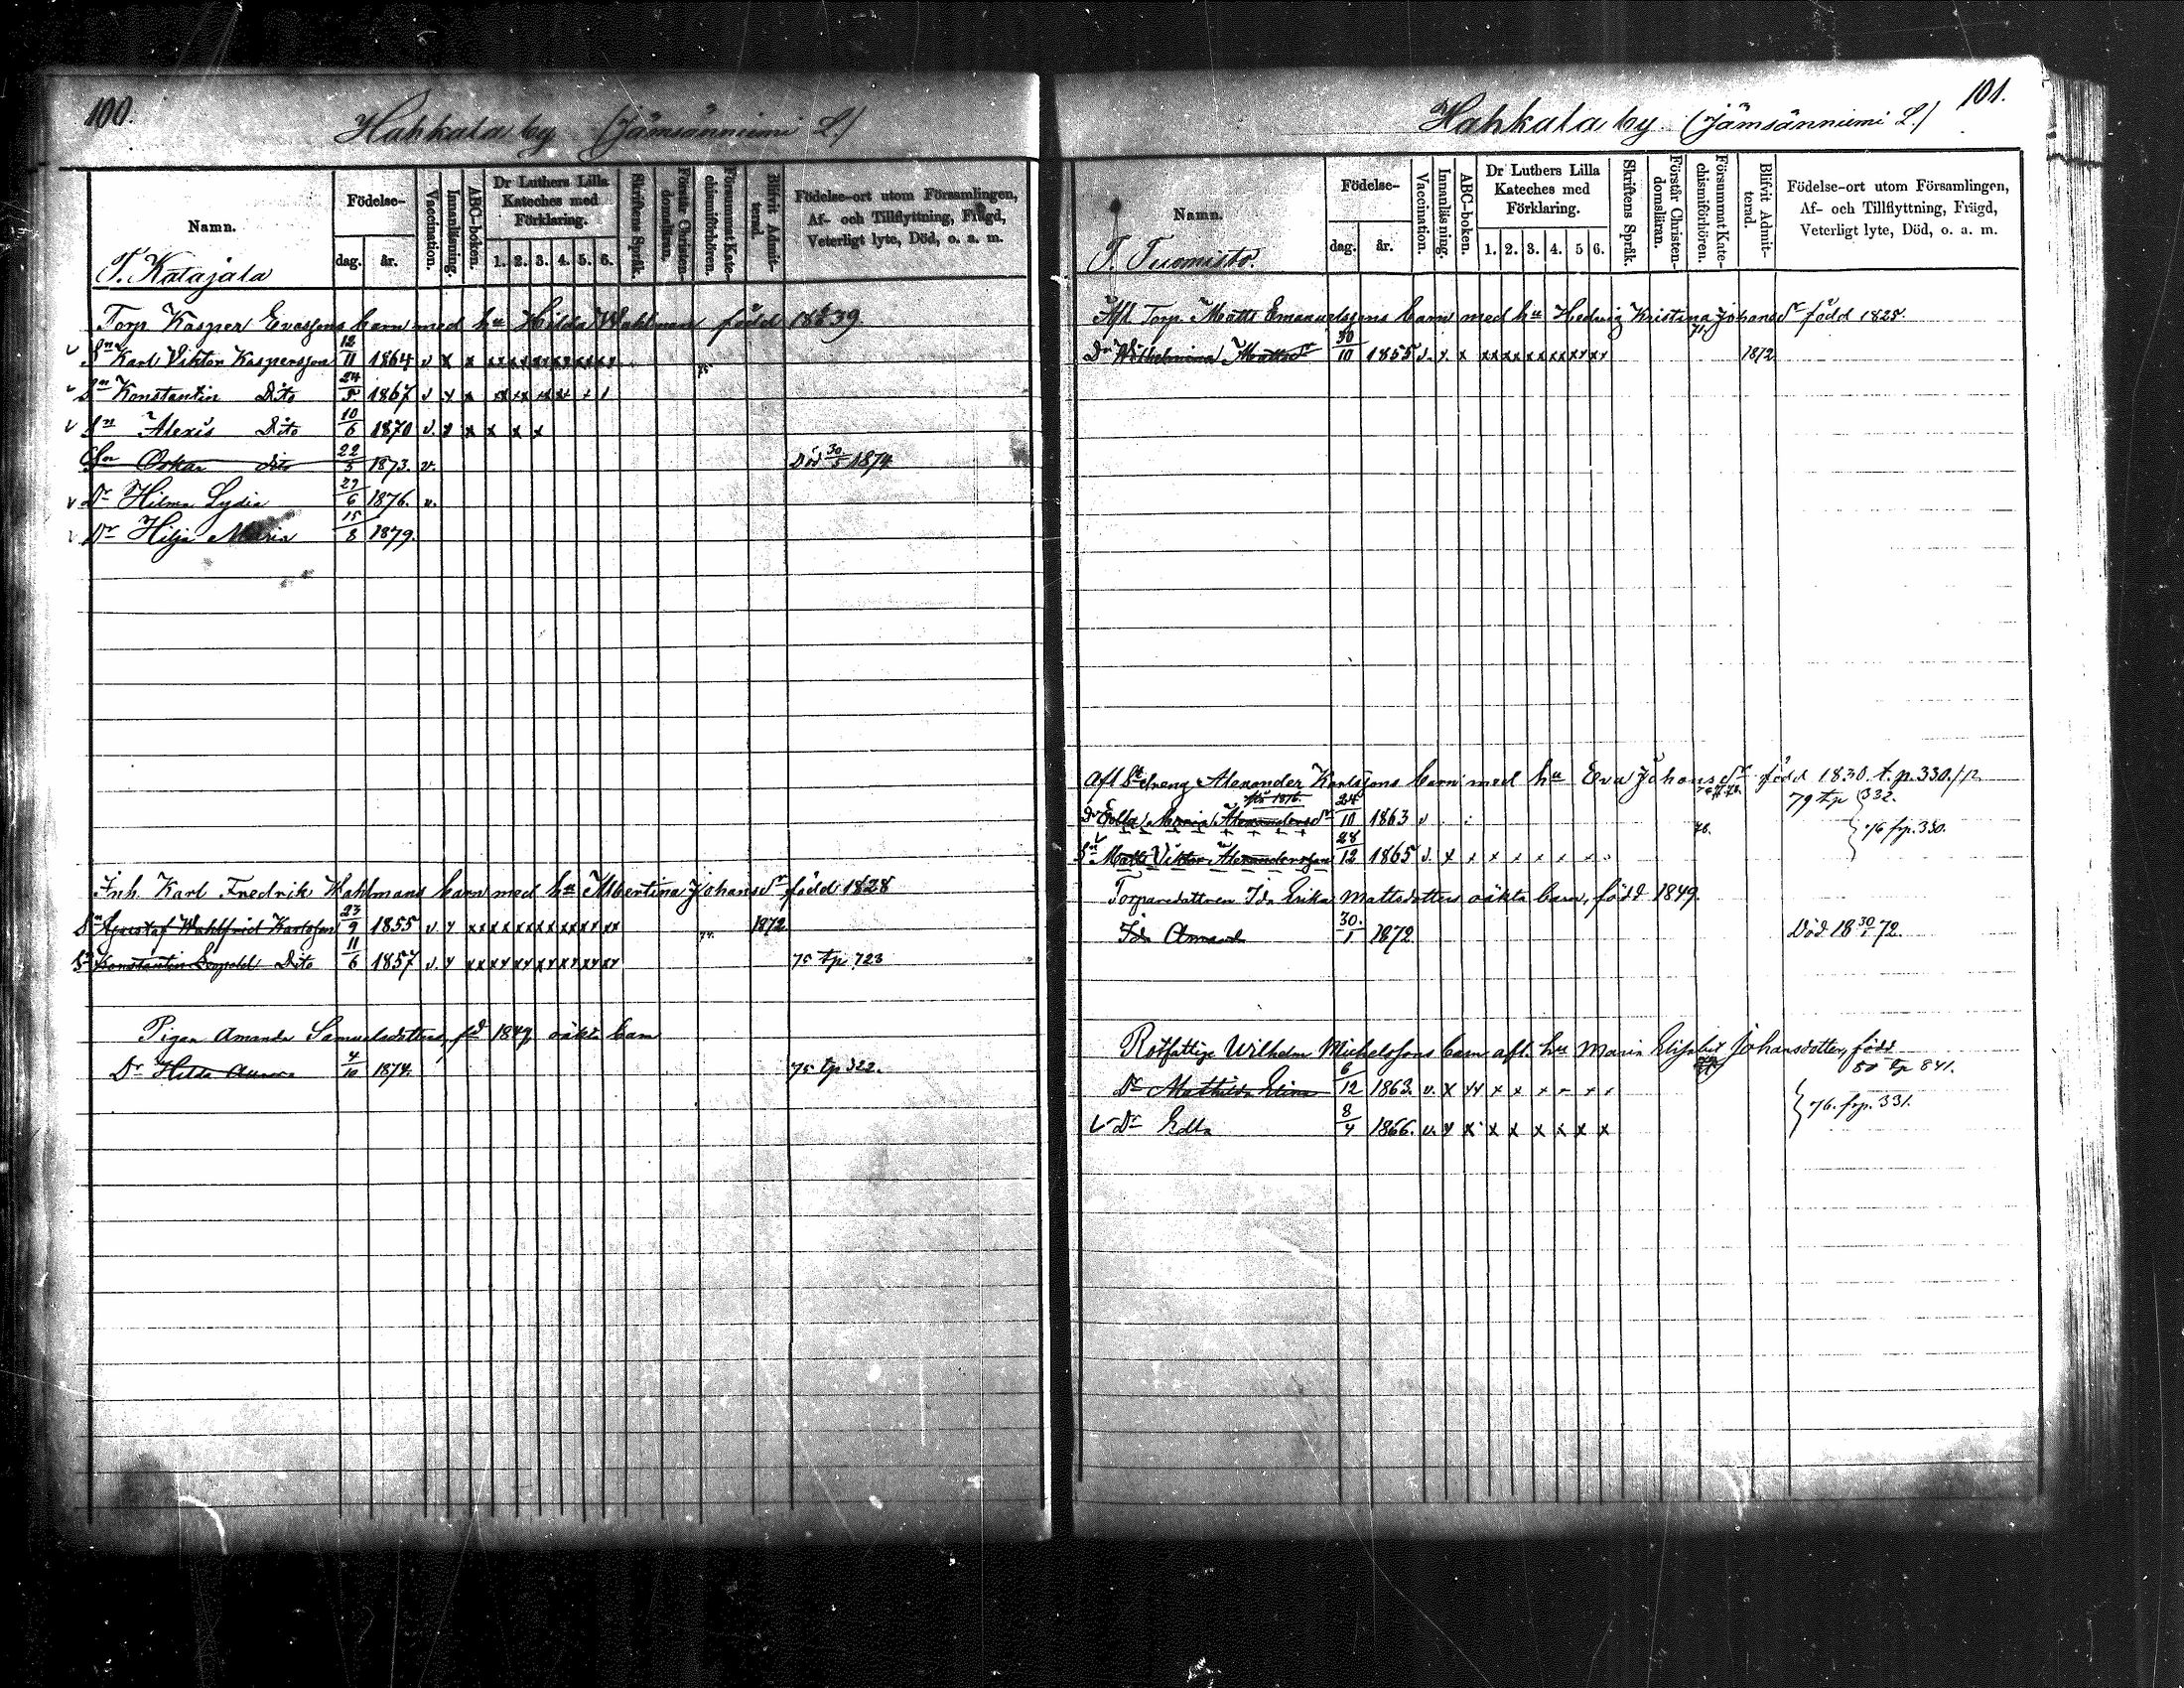 100.
Hahkala by (Jämsänniemi L.)
Namn.
Födelse-
dag.
år.
Vaccination.
Innanläsning.
ABC-boken.
Dr Luthers Lilla Kateches med Förklaring.
1. 2. 3. 4. 5. 6.
Skriftens Språk.
Förstår Christen-domsläran.
Försummat Kate-chismiförhören.
Blifvit Admit-terad.
Födelse-ort utom Församlingen,
Af- och Tillflyttning, Frägd,
Veterligt lyte, Död, o. a. m.
T. Katajala
Torp. Kasper Evassons barn med hu Hilda Wahlman född 1839.
Sn Karl Viktor Kaspersson 12/11 1864 v x x
Sn Konstantin Dito 24/5 1867 v x x
Sn Alexis Dito 10/6 1870 v. x x x x x
Son Oskar dito 22/5 1873. v. Död 30/5 1874
Dr Hilma Lydia 29/6 1876. v.
Dr Hilja Maria 15/8 1879.
Inh. Karl Fredrik Wahlmans barn med hu Albertina Johansdr född 1828
Sn Gustaf Wahlfrid Karlsson 23/9 1855 v x 1872
Sn Konstantin Leopold Dito 11/6 1857 v. x 75 tp 723
Pigan Amanda Samuelsdotters fd 1849 oäkta barn
Dr Hilda Aurora 4/10 1874. 75 tp 322.
101.
Hahkala by (Jämsänniemi L.)
Namn.
Födelse-
dag.
år.
Vaccination.
Innanläsning.
ABC-boken.
Dr Luthers Lilla Kateches med Förklaring.
1. 2. 3. 4. 5 6.
Skriftens Språk.
Förstår Christen-domsläran.
Försummat Kate-chismiförhören.
Blifvit Admit-terad.
Födelse-ort utom Församlingen,
Af- och Tillflyttning, Frägd,
Veterligt lyte, Död, o. a. m.
T. Tuomisto.
Afl. Torp. Matts Emanuelssons barn med hu Hedvig Kristina Johansdr född 1825.
Dr Wilhelmina Mattsdr 30/10 1855 v. x x 1872
Afl Sn dreng Alexander Karlssons barn med hu Eva Johansdr född 1830. t.p. 330.
79 tp 332.
Dr Edla Maria Alexandersdr 24/10 1863 v
76 frp. 330.
Sn Matts Viktor Alexandersson 28/12 1865 v. x x x x x x x
Torparedottren Ida Erika Mattsdotters oäkta barn, född 1849.
Ida Amanda 30./1 1872 Död 18 30/1 72.
Rotfattige Wilhelm Michelssons barn afl. hu Maria Elisabet Johansdotter, född
80 tp 841.
Dr Mathilda Elina 6/12 1863. v. x
76. frp. 331.
Dr Edla 8/4 1866. v. x x x x x x x x